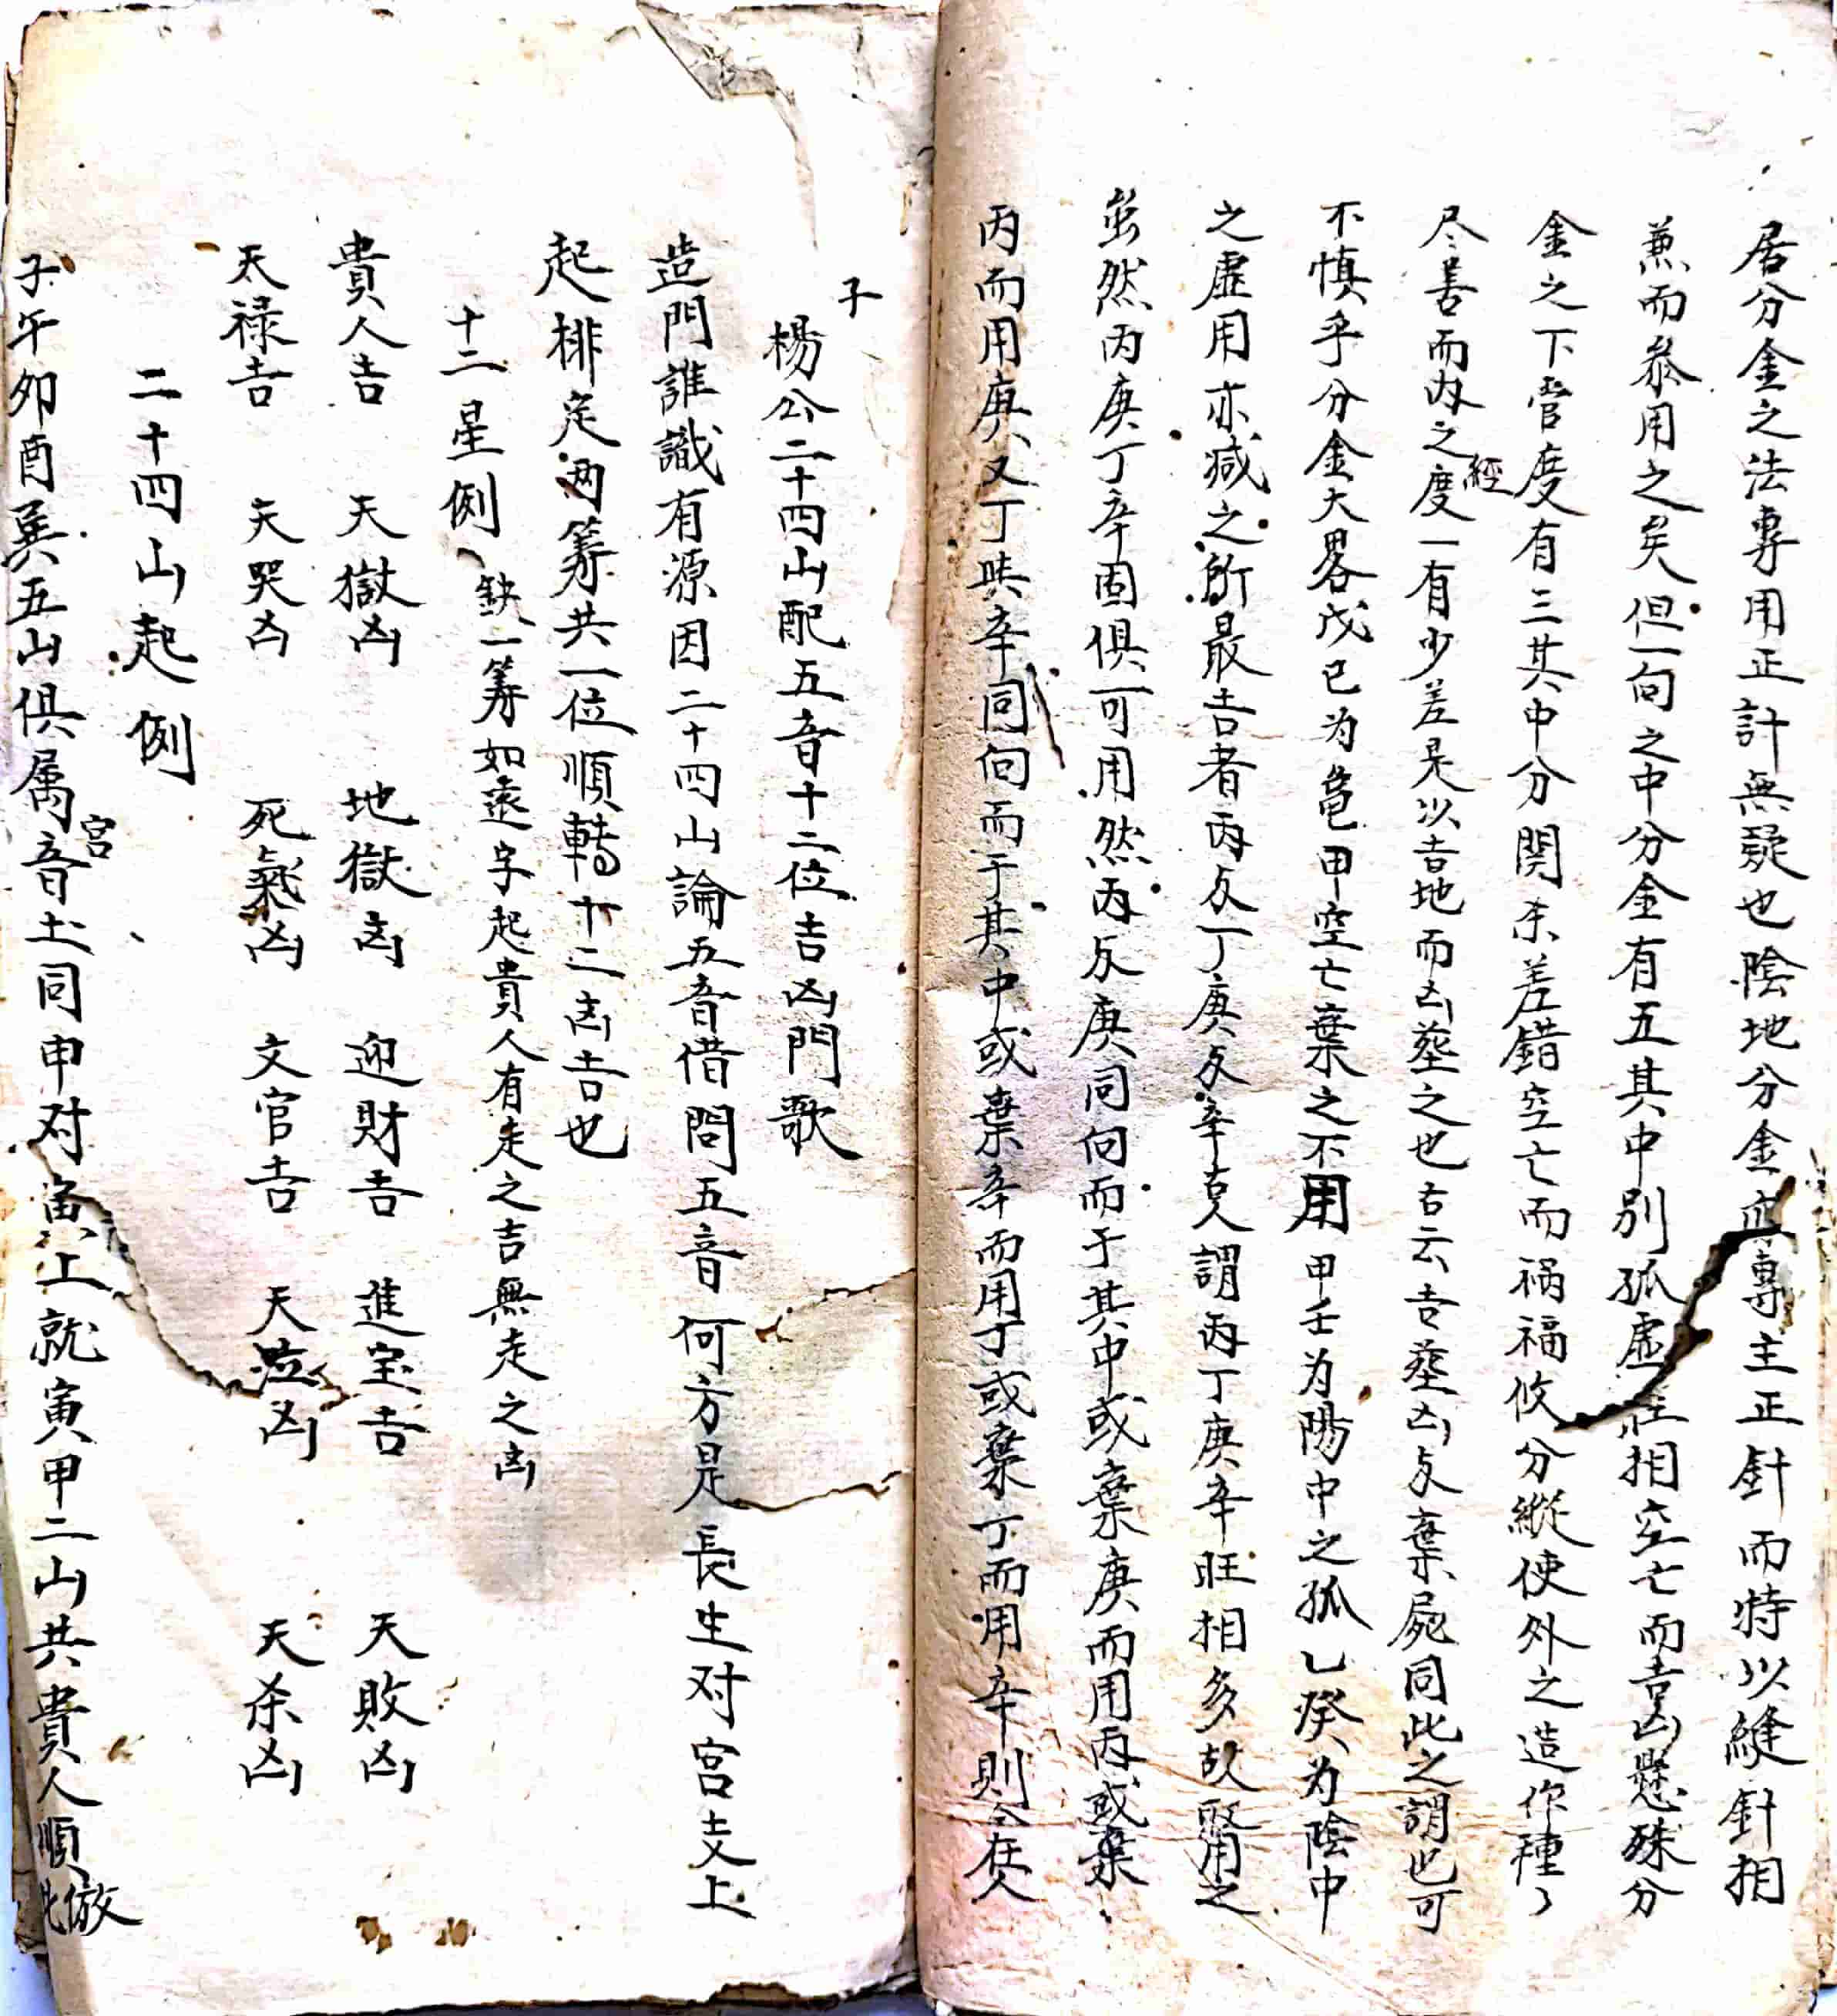 居分金之法專用正計無疑也陰地分金亦專主正針而特以縫針相
兼而叅用之矣但一向之中分金有五其中別孤虛旺相空亡而吉凶懸殊分
金之下管度有三其中分関杀差錯空亡而禍福攸分縱使外之造作種々
尽善而內之經度一有少差是以吉地而凶葬之也古云吉葬凶与棄屍同此之謂也可
不慎乎分金大畧戊己为龜甲空亡棄之不用甲壬为陽中之孤乙癸为陰中
之虛用亦减之所最吉者丙与丁庚与辛克謂丙丁庚辛旺相多故取用之
虽然丙庚丁辛固俱可用然丙与庚同向而于其中或棄庚而用丙或棄
丙而用庚又丁與辛同向而于其中或棄辛而用丁或棄丁而用辛則全在人
子
楊公二十四山配五音十二位吉凶門歌
造門誰識有源因二十四山論五音借問五音何方是長生对宮支上
起排定两籌共一位順轉十二凶吉也
十二星例 缺一籌如遠字起貴人有走之吉無走之凶
貴人吉 天獄凶 地獄凶 迎財吉 進宝吉 天敗凶
天禄吉 天哭凶 死氣凶 文官吉 天泣凶 天杀凶
二十四山起例
子午卯酉巽五山俱属宮音土同申对寅上就寅甲二山共貴人順倣此